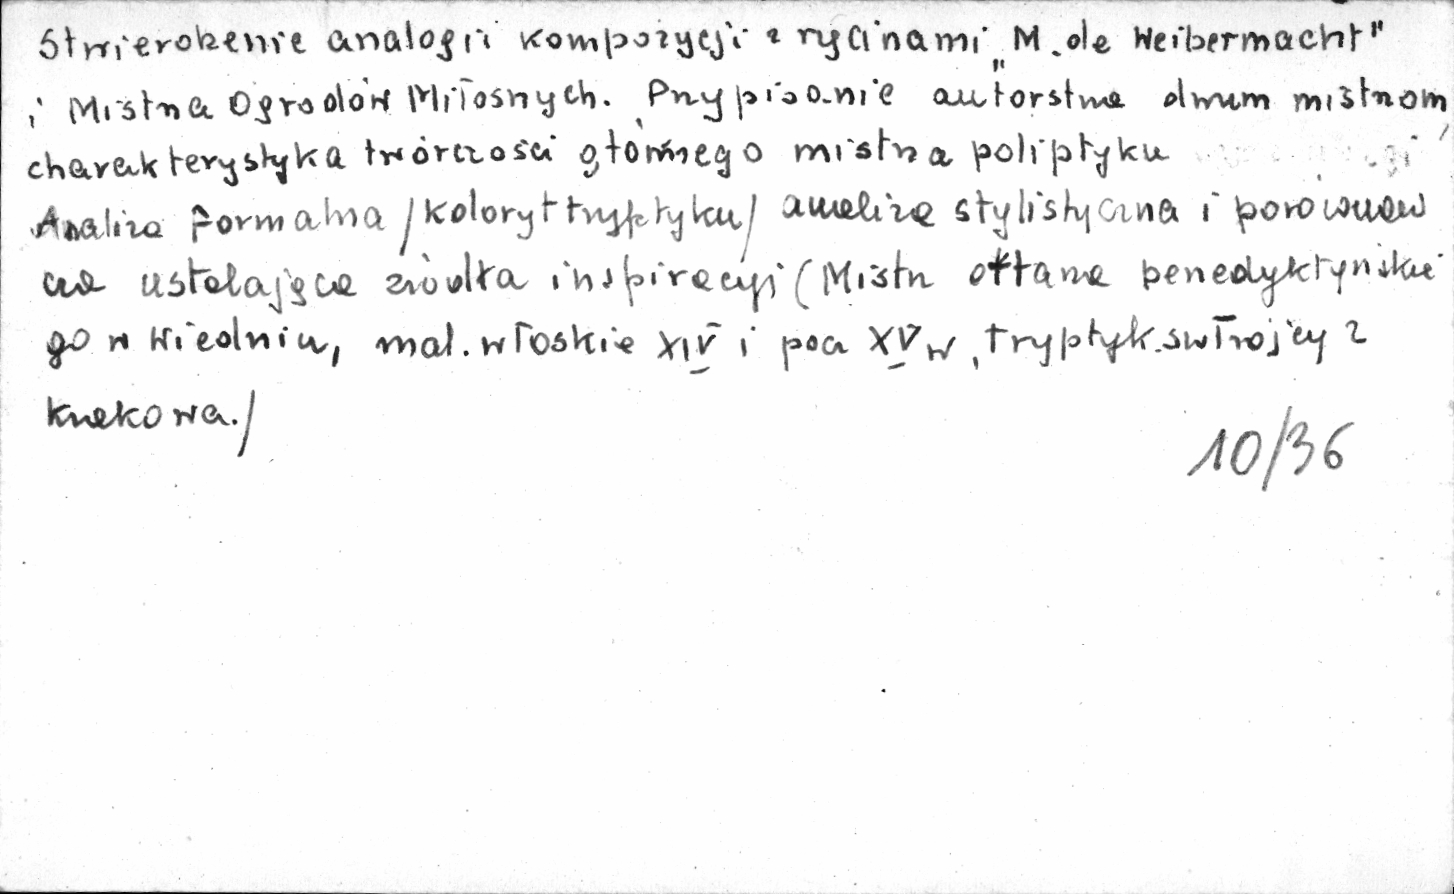 Stwierdzenie analogii kompozycji z rycinami „M. de Weibermacht"
i Mistrza Ogrodów Miłosnych. Przypisanie autorstwa dwum mistrzom,
charakterystyka twórczości głównego mistrza poliptyku
Analiza formalna /koloryt tryptyku/ analiza stylistyczna i porównaw
cza ustalająca źródła inspiracji (Mistrz ołtarza benedyktyńskie
go w Wiedniu, mal. włoskie XIV i pocz XV w, tryptyk św Trójcy z
Krakowa./
10/36